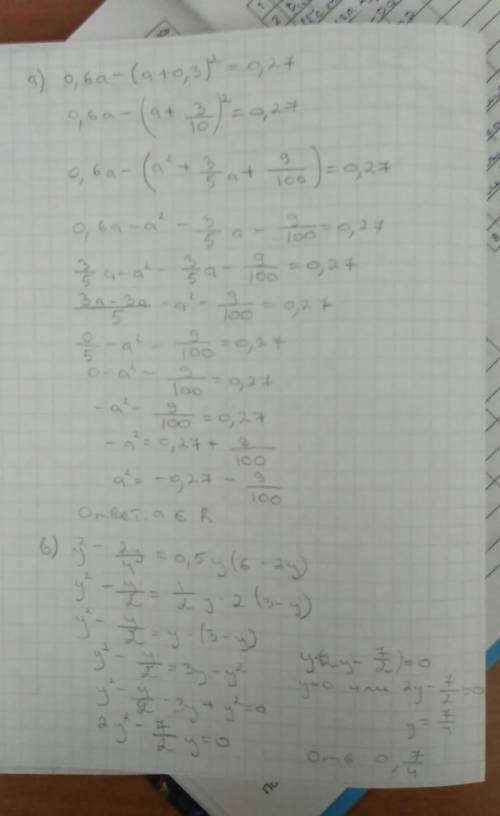 а) 0,6a - (a + 0,3)² = 0,27
0,6a - (a + 3/10)² = 0,27
0,6a - (a² + 3/5 a + 9/100) = 0,27
0,6a - a² - 3/5 a - 9/100 = 0,27
3/5 a - a² - 3/5 a - 9/100 = 0,27
3a - 3a/5 - a² - 9/100 = 0,27
0/5 - a² - 9/100 = 0,27
0 - a² - 9/100 = 0,27
-a² - 9/100 = 0,27
-a² = 0,27 + 9/100
a² = -0,27 - 9/100
Ответ: a ∈ R
в) y² - 2y/4 = 0,5y(6 - 2y)
y² - y/2 = 1/2 y · 2(3 - y)
y² - y/2 = y · (3 - y)
y² - y/2 = 3y - y²
y² - y/2 - 3y + y² = 0
2y² - 7/2 y = 0
y(2y - 7/2) = 0
y = 0 или 2y - 7/2 = 0
y = 7/4
Отв 0, 7/4